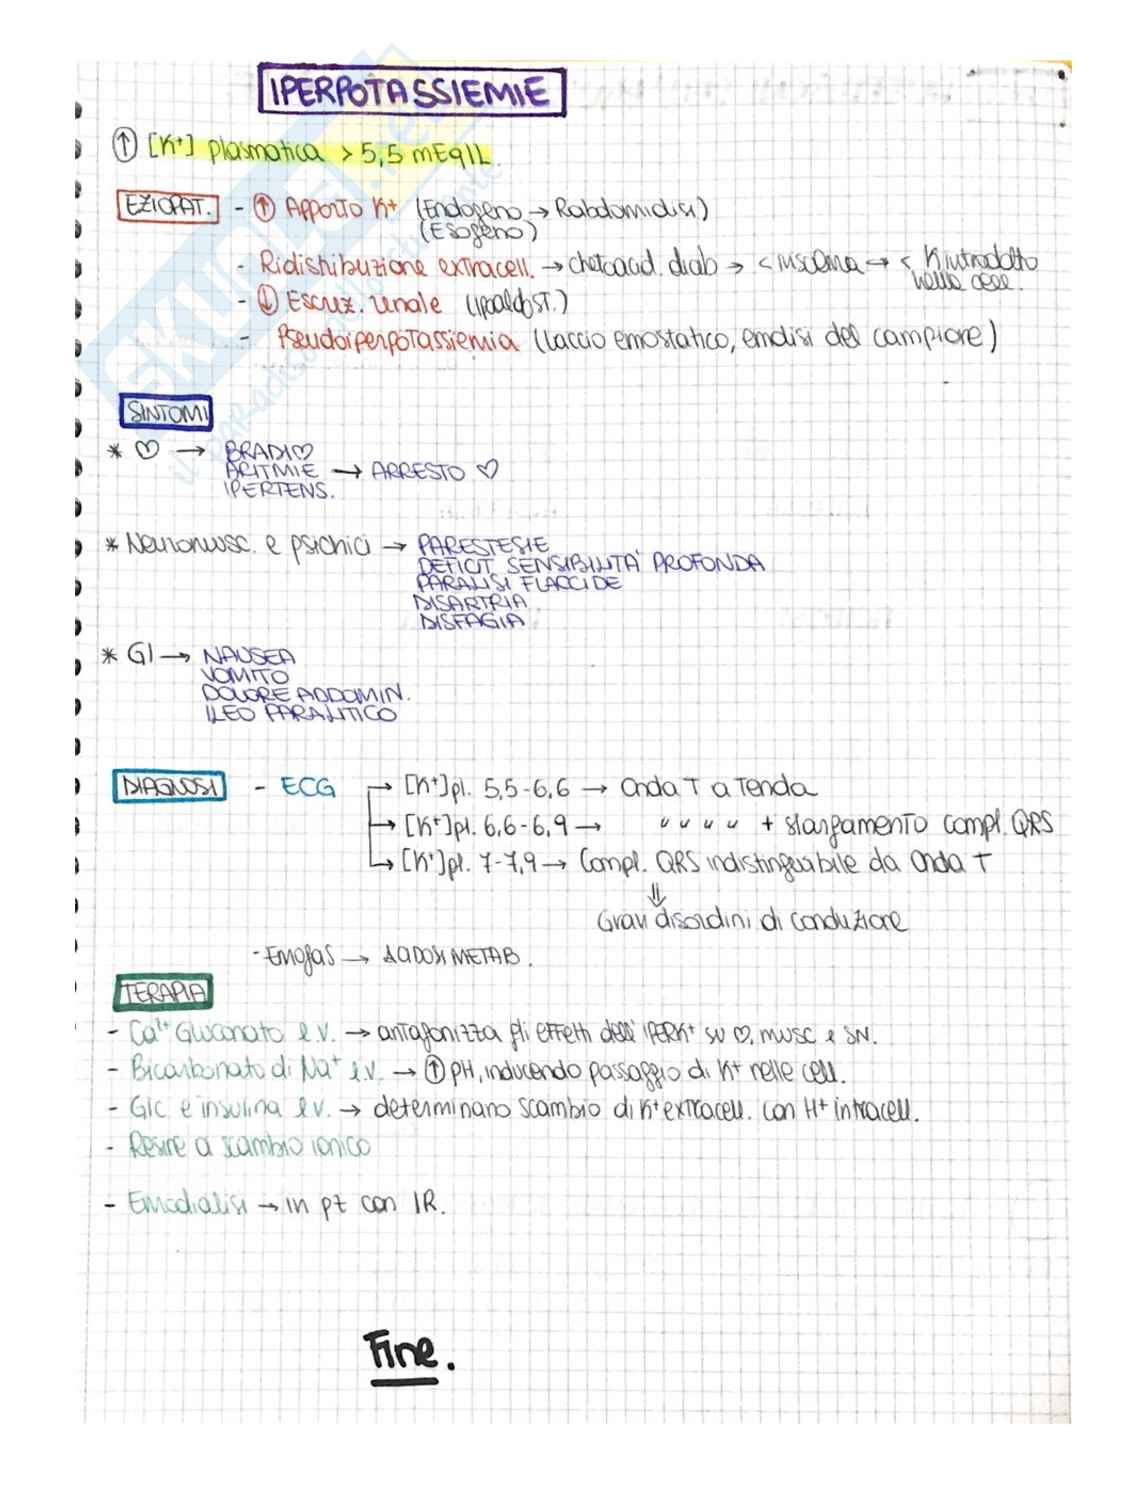 IPERPOTASSIEMIE
↑ [K+] plasmatica > 5,5 mEq/L
EZIOPAT. - ↑ Apporto K+ (Endogeno → Rabdomiolisi)
(Esogeno)
- Ridistribuzione extracell. → chetoacid. diab → < insulina → < K introdotto
nelle cell.
- ↓ Escrez. renale (ipoaldost.)
- Pseudoiperpotassiemia (laccio emostatico, emolisi del campione)
SINTOMI
* ♡ → BRADI♡
ARITMIE → ARRESTO ♡
IPERTENS.
* Neuromusc. e psichici → PARESTESIE
DEFICIT SENSIBILITA' PROFONDA
PARALISI FLACCIDE
DISARTRIA
DISFAGIA
* GI → NAUSEA
VOMITO
DOLORE ADDOMIN.
ILEO PARALITICO
DIAGNOSI - ECG → [K+]pl. 5,5-6,6 → Onda T a Tenda
→ [K+]pl. 6,6-6,9 → " " " " + slargamento compl. QRS
→ [K+]pl. 7-7,9 → Compl. QRS indistinguibile da onda T
⇓
Gravi disordini di conduzione
- Emogas → ACIDOSI METAB.
TERAPIA
- Ca++ Gluconato e.v. → antagonizza gli effetti dell'IPERK+ su ♡, musc e SN.
- Bicarbonato di Na+ e.v. → ↑ pH, inducendo passaggio di K+ nelle cell.
- Glc e insulina e.v. → determinano scambio di K+ extracell. con H+ intracell.
- Resine a scambio ionico
- Emodialisi → in pt con IR.
Fine.
SKUOLA.net
il paradiso dello studente